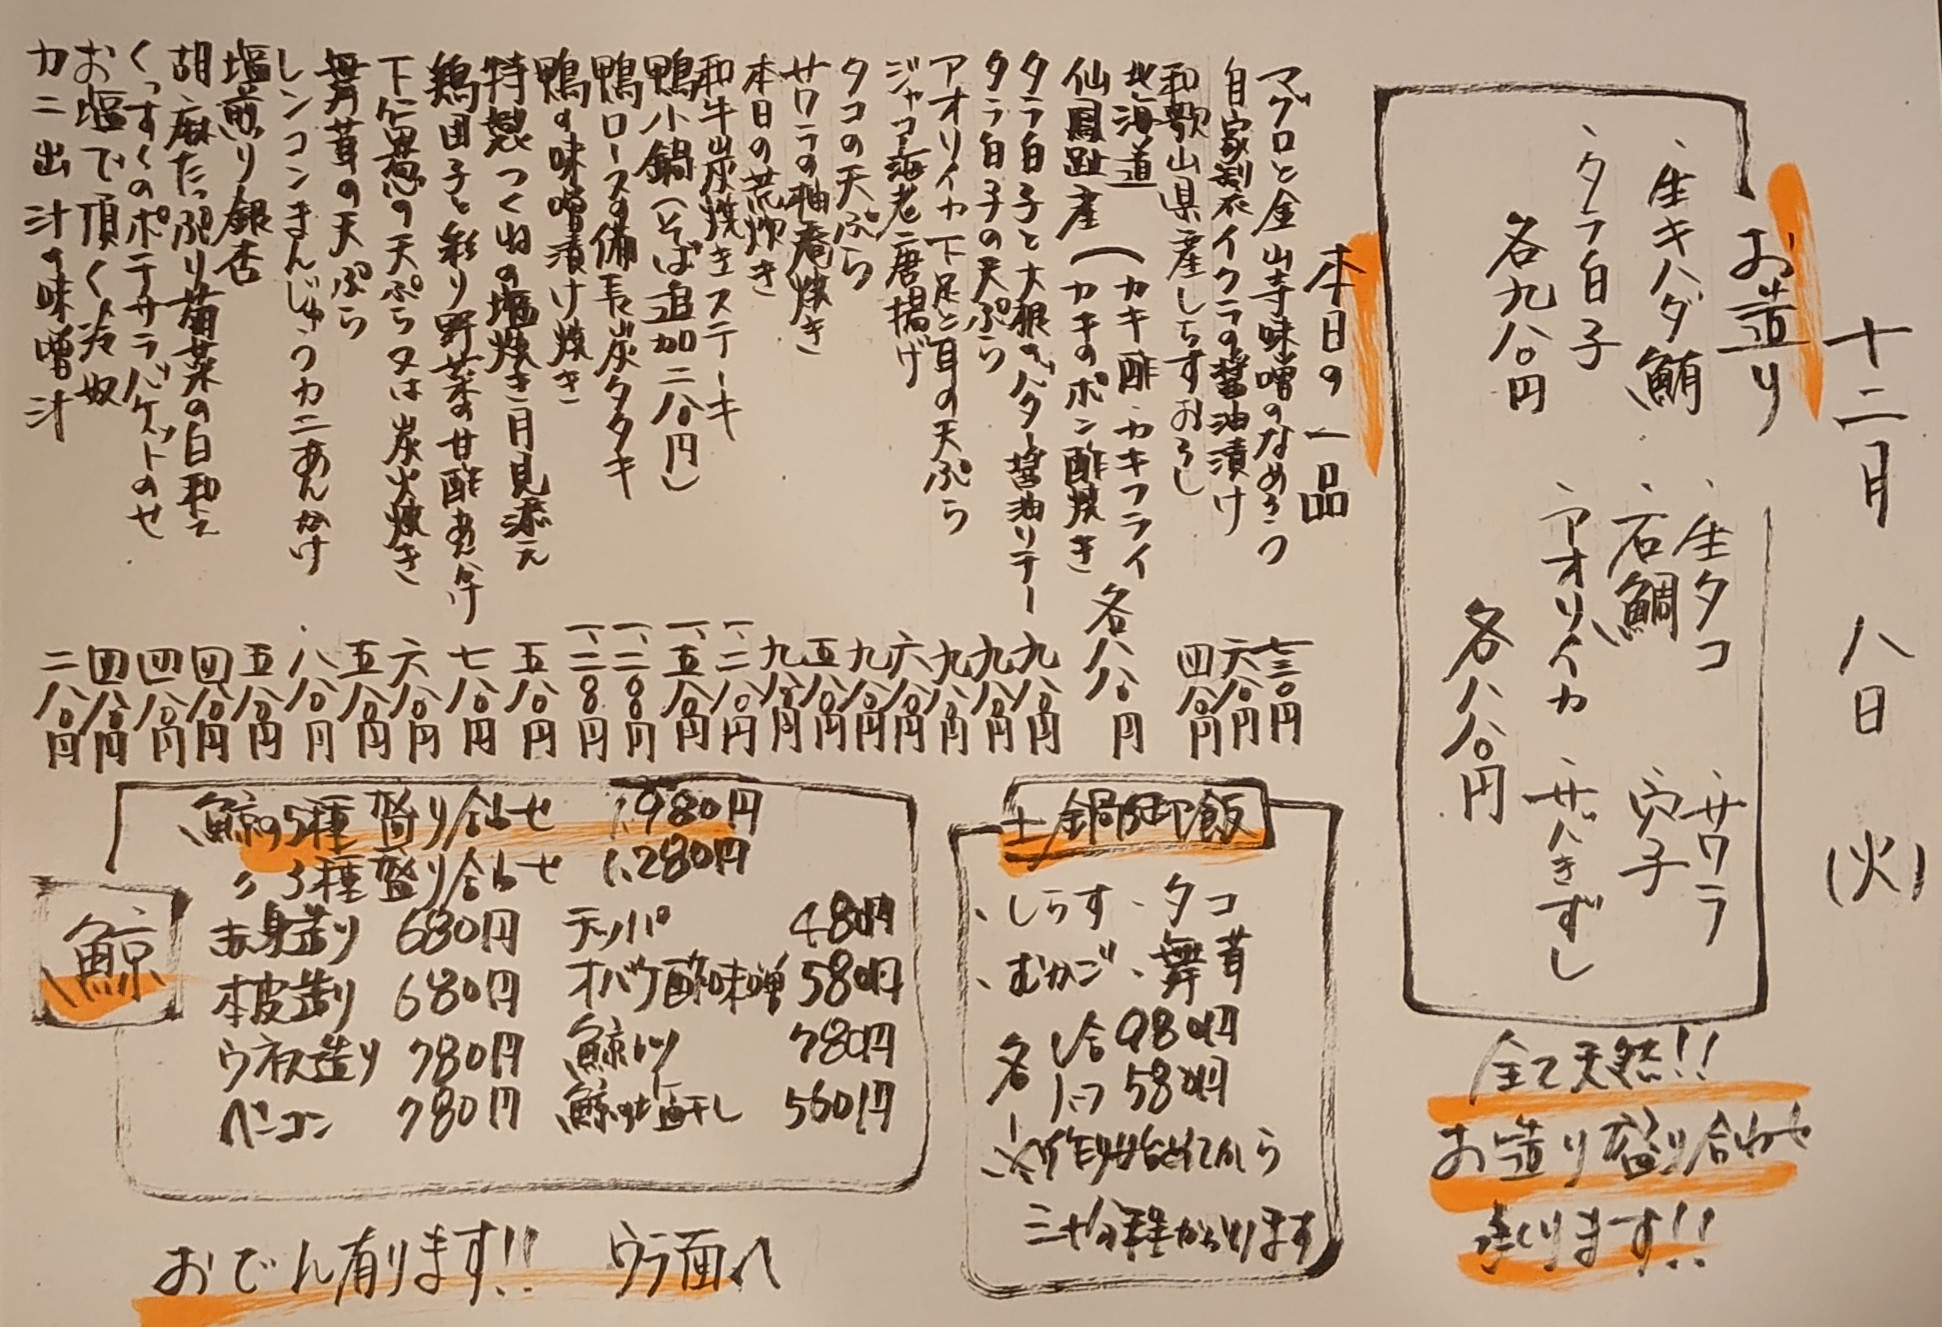 十二月 八日 (火)
お造り
、生タコ 、サワラ
、生キハダ鮪 、石鯛 、穴子
、タラ白子 、アオリイカ 、サバきずし
各九八〇円 各八八〇円
全て天然!!
お造り盛り合わせ
承ります!!
本日の一品
マグロと金山寺味噌のなめろう 七三〇円
自家製イクラの醤油漬け 六八〇円
和歌山県産しらすおろし 四八〇円
北海道
仙鳳趾産 (カキ酢・カキフライ
(カキのポン酢焼き 各八八〇円
タラ白子と大根のバター醤油ソテー 九八〇円
タラ白子の天ぷら 九八〇円
アオリイカ下足と耳の天ぷら 九八〇円
ジャコ海老唐揚げ 六八〇円
タコの天ぷら 九八〇円
サワラの柚庵焼き 五八〇円
本日の荒炊き 九八〇円
和牛炭焼きステーキ 一、二八〇円
鴨小鍋(そば追加二八〇円) 一、五八〇円
鴨ロースの備長炭タタキ 一、二〇〇円
鴨の味噌漬け焼き 一、二〇〇円
特製つくねの塩焼き月見添え 五八〇円
鶏団子と彩り野菜の甘酢あんかけ 七八〇円
下仁田葱の天ぷら又は炭火焼き 六八〇円
舞茸の天ぷら 五八〇円
レンコンまんじゅうカニあんかけ 八八〇円
塩煎り銀杏 五八〇円
胡麻たっぷり菊菜の白和え 四八〇円
くっすくのポテサラバケットのせ 四八〇円
お塩で頂く冷奴 四八〇円
カニ出汁の味噌汁 二八〇円
土鍋御飯
、しらす 、タコ
、むかご 、舞茸
各 1合 980円
1つ 580円
※作り始めてから
三十分程かかります
鯨
鯨の5種盛り合わせ 1,980円
〃 3種盛り合わせ 1,280円
赤身造り 680円 テッパ 480円
本皮造り 680円 オバケ酢味噌 580円
ウネス造り 780円 鯨カツ 780円
ベーコン 780円 鯨の塩干し 560円
おでん有ります!! ウラ面へ